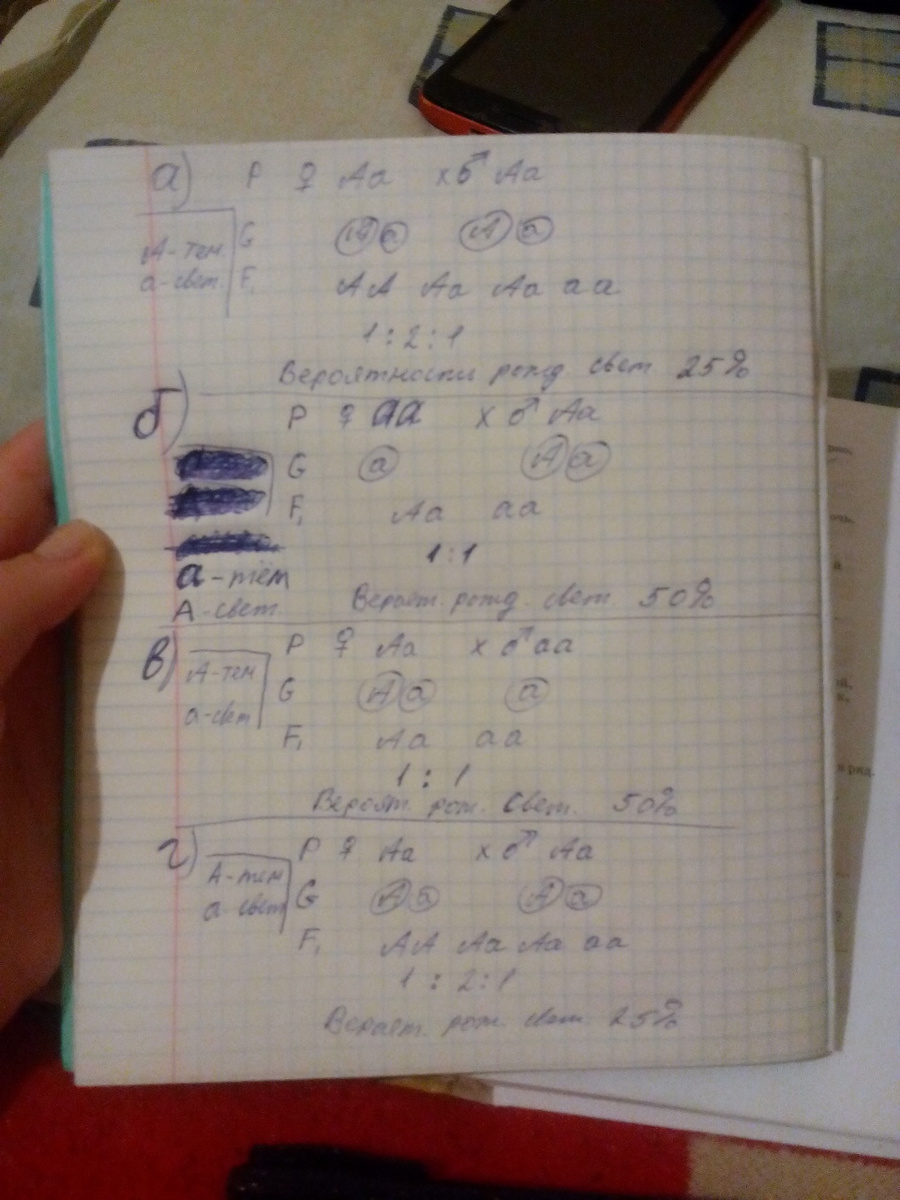 а) P ♀ Aa x ♂ Aa
А-тем G A a A a
а-свет. F₁ AA Aa Aa aa
1 : 2 : 1
Вероятности рожд свет 25%
б) P ♀ aa x ♂ Aa
G a A a
F₁ Aa aa
1:1
а-тём
А-свет. Вероят. рожд. свет 50%
в) P ♀ Aa x ♂ aa
А-тем G A a a
а-свет F₁ Aa aa
1 : 1
Вероят. рож. свет. 50%
г) P ♀ Aa x ♂ Aa
А-тем G A a A a
а-свет F₁ AA Aa Aa aa
1 : 2 : 1
Вероят. рож. свет. 25%